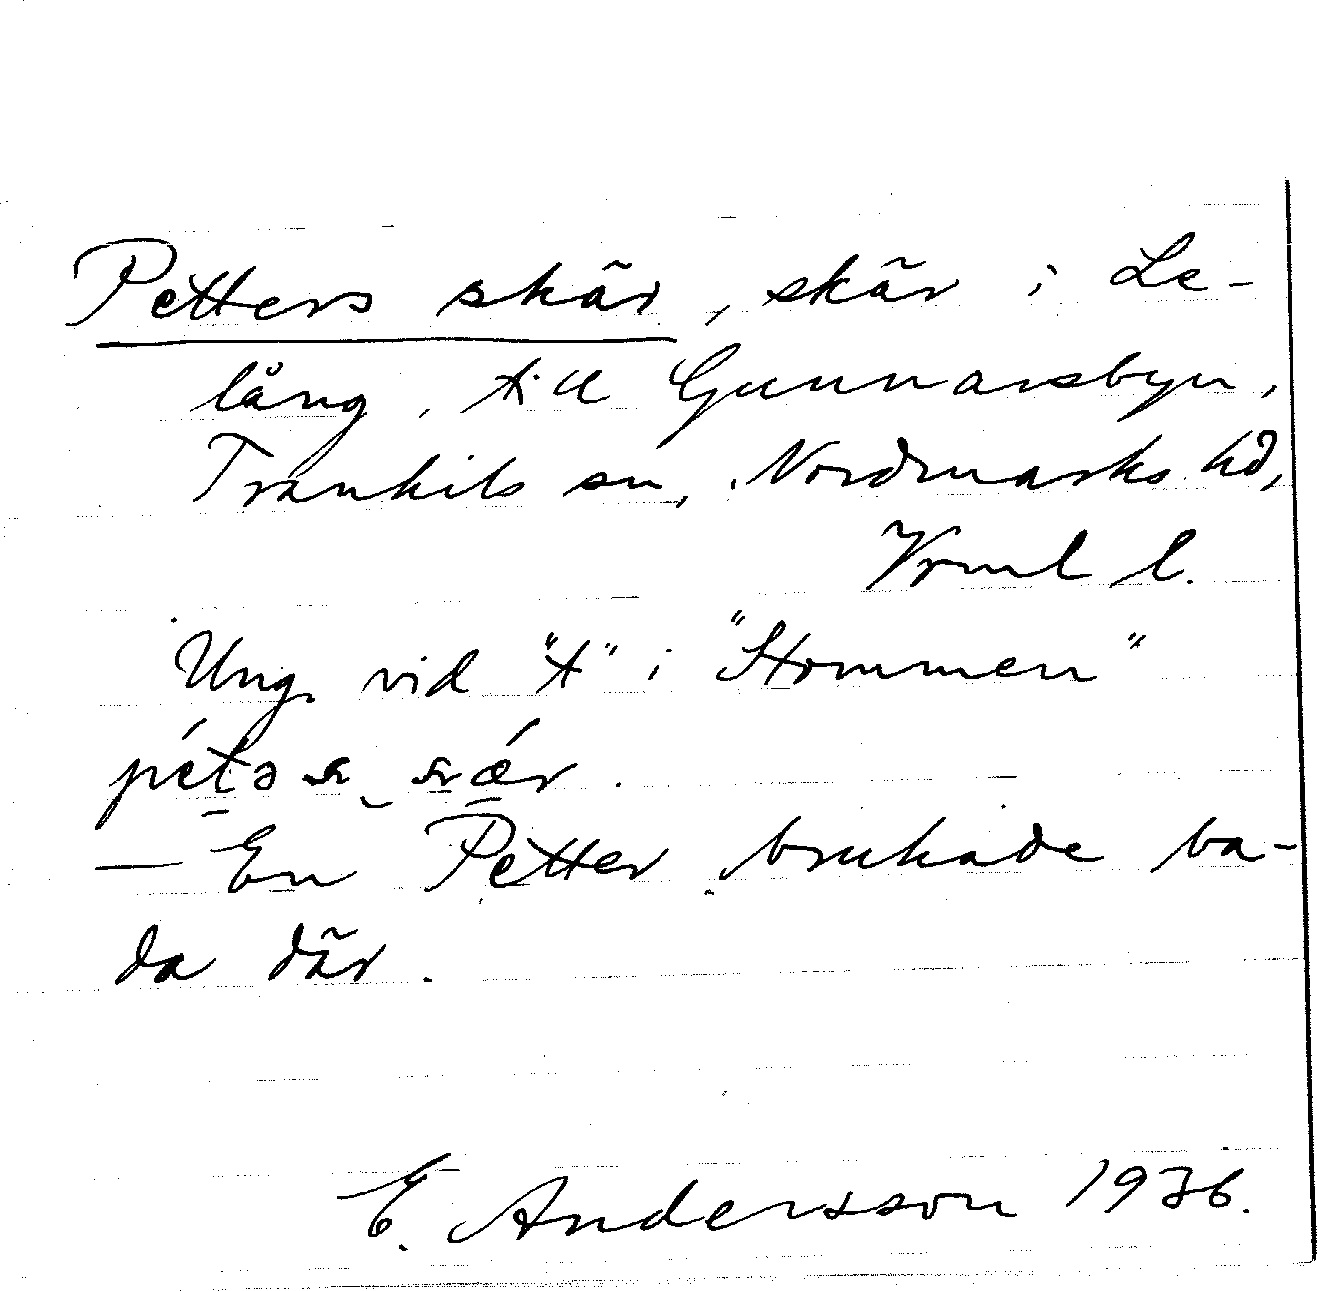 Petters skär, skär i Le-
lång, till Gunnarsbyn,
Trankils sn, Nordmarks hd,
Vrml l.
Ung. vid "t" i "Stommen"
En Petter brukade ba-
da där.
E. Andersson 1936.